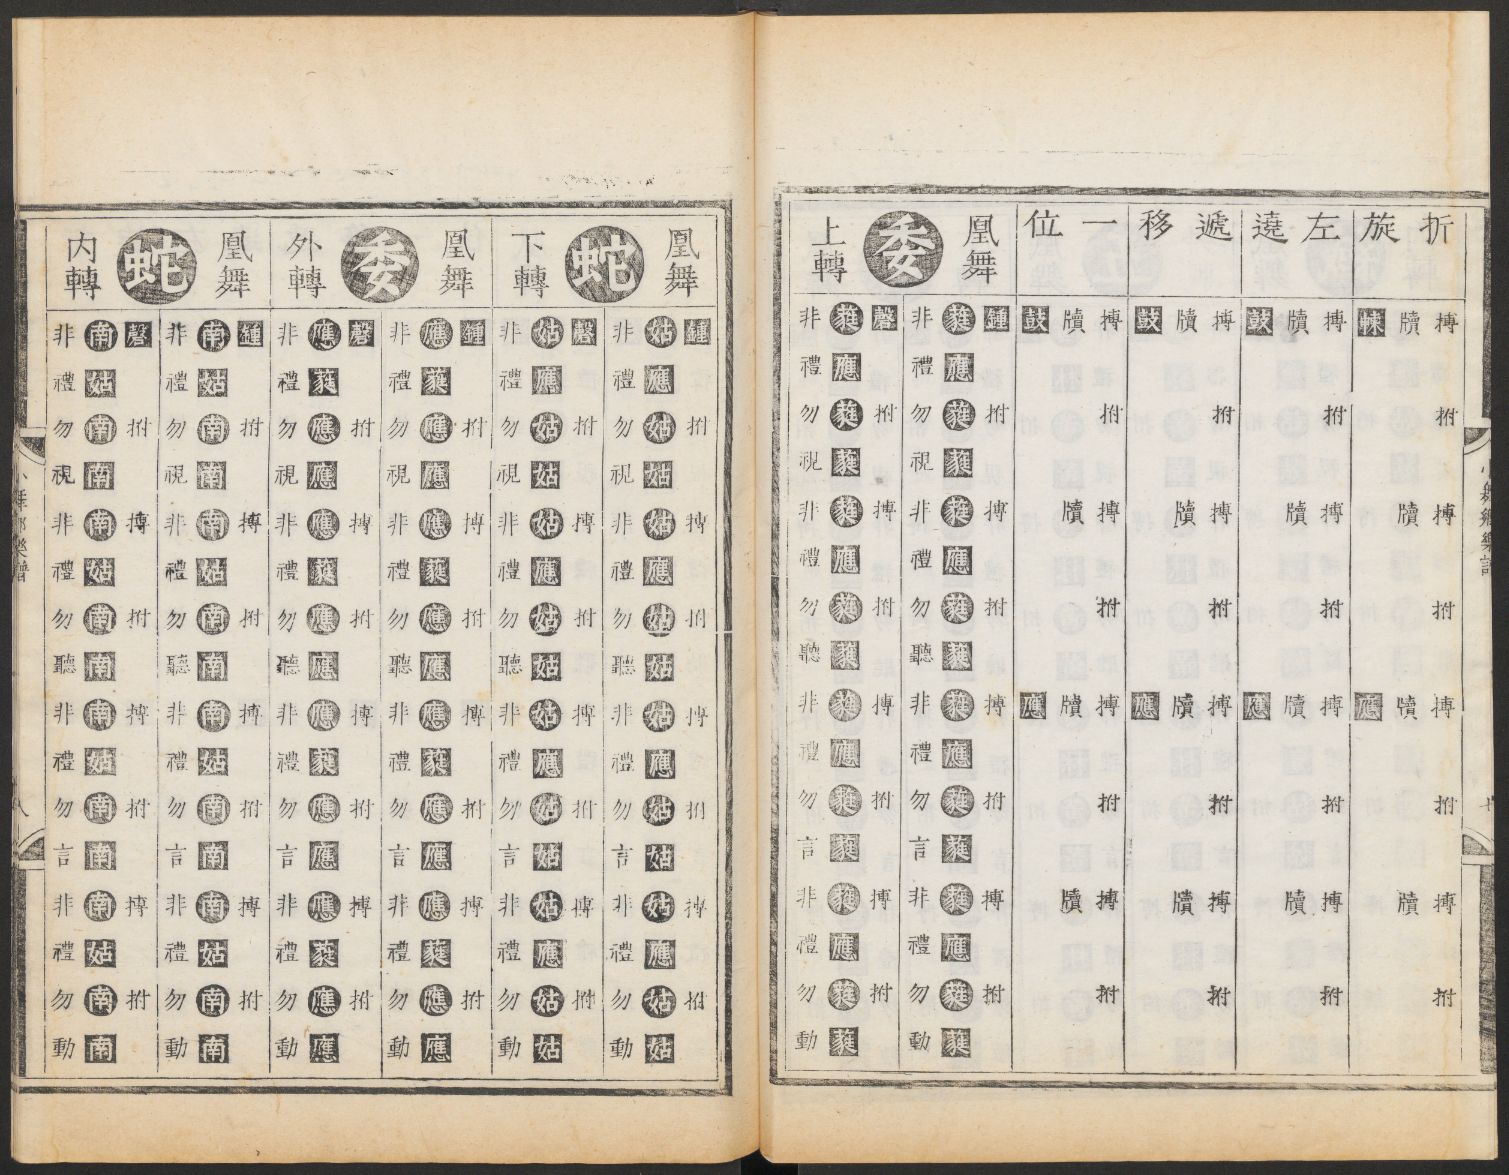 小舞鄉樂譜
七
折旋
搏拊搏拊搏拊搏拊
牘牘牘牘
應
左遶
搏拊搏拊搏拊搏拊
牘牘牘牘
鼓應
遞移
搏拊搏拊搏拊搏拊
牘牘牘牘
鼓應
一位
搏拊搏拊搏拊搏拊
牘牘牘牘
鼓應
凰舞
委
上轉
鍾拊搏拊搏拊搏拊
蕤應蕤蕤蕤應蕤蕤蕤應蕤蕤蕤應蕤蕤
非禮勿視非禮勿聽非禮勿言非禮勿動
磬拊搏拊搏拊搏拊
蕤應蕤蕤蕤應蕤蕤蕤應蕤蕤蕤應蕤蕤
非禮勿視非禮勿聽非禮勿言非禮勿動
凰舞
蛇
下轉
鍾拊搏拊搏拊搏拊
姑應姑姑姑應姑姑姑應姑姑姑應姑姑
非禮勿視非禮勿聽非禮勿言非禮勿動
磬拊搏拊搏拊搏拊
姑應姑姑姑應姑姑姑應姑姑姑應姑姑
非禮勿視非禮勿聽非禮勿言非禮勿動
凰舞
委
外轉
鍾拊搏拊搏拊搏拊
應蕤應應應蕤應應應蕤應應應蕤應應
非禮勿視非禮勿聽非禮勿言非禮勿動
磬拊搏拊搏拊搏拊
應蕤應應應蕤應應應蕤應應應蕤應應
非禮勿視非禮勿聽非禮勿言非禮勿動
凰舞
蛇
内轉
鍾拊搏拊搏拊搏拊
南姑南南南姑南南南姑南南南姑南南
非禮勿視非禮勿聽非禮勿言非禮勿動
磬拊搏拊搏拊搏拊
南姑南南南姑南南南姑南南南姑南南
非禮勿視非禮勿聽非禮勿言非禮勿動
小舞鄉樂譜
八